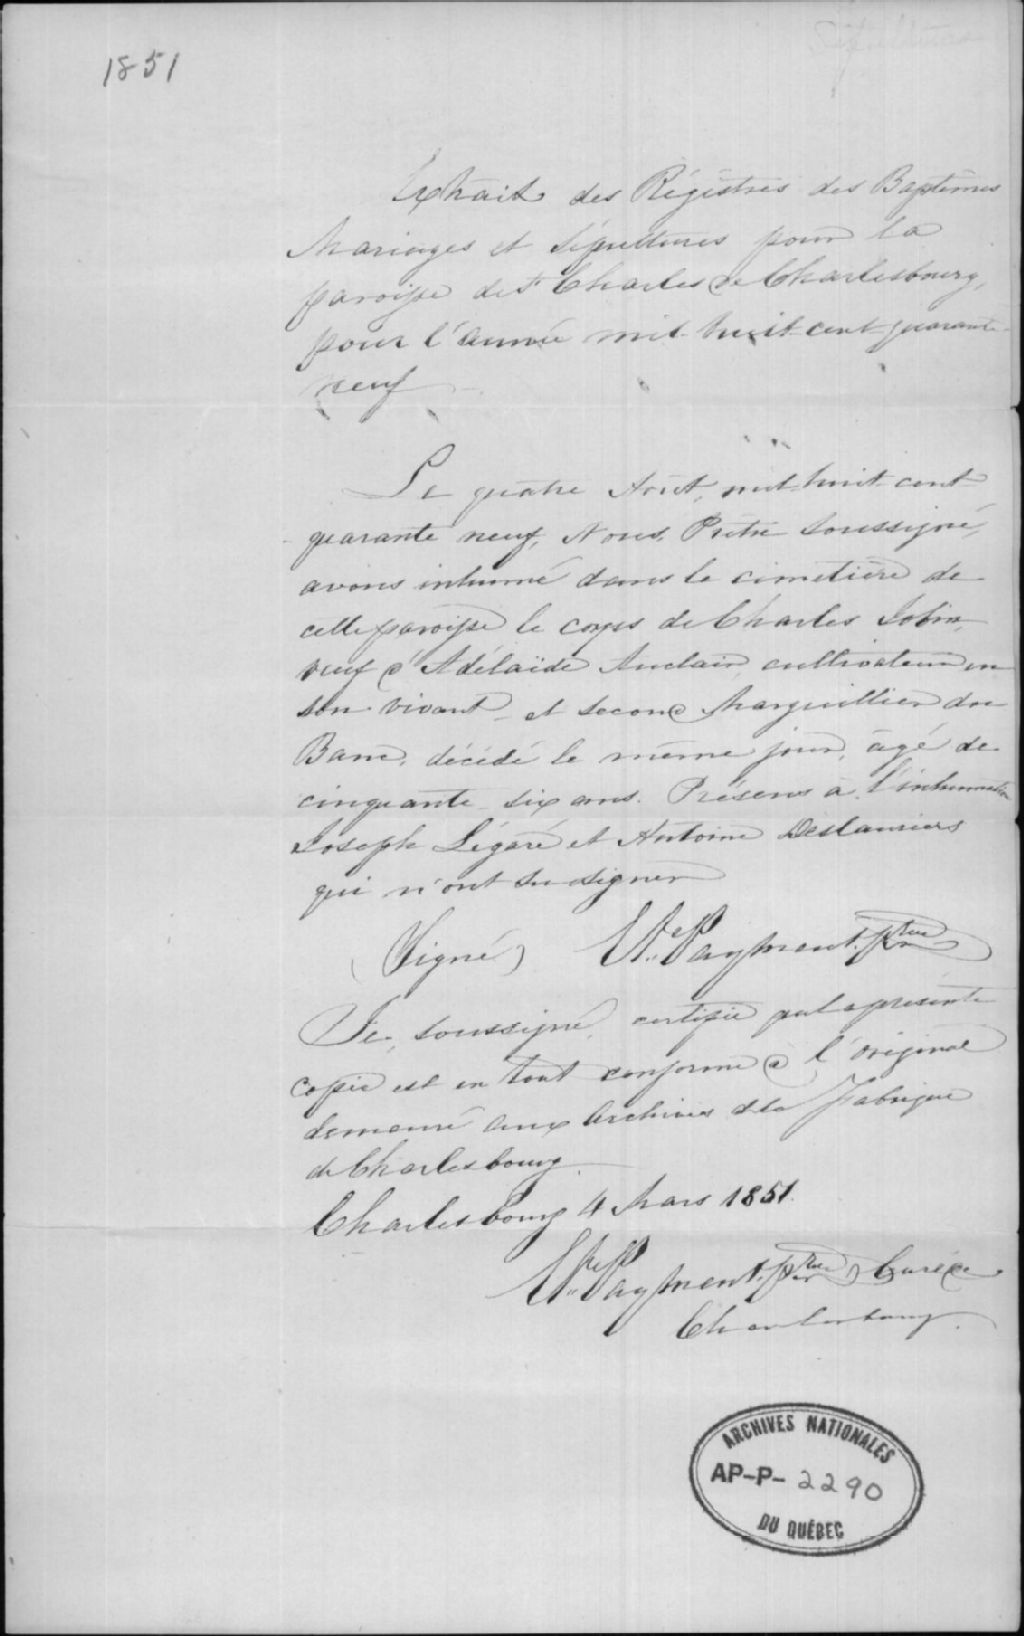 1851
Extrait des Régistres des Baptêmes
Mariages et Sépultures pour la
paroisse de St Charles de Charlesbourg,
pour l'année mil-huit-cent-quarante-
neuf
Le quatre Août, mil-huit-cent-
quarante neuf, Nous, Prêtre Soussigné,
avons inhumé dans le cimetière de
cette paroisse le corps de Charles Jobin,
veuf d'Adélaïde Auclair, cultivateur en
son vivant, et second Marguillier du
Banc, décédé le même jour, âgé de
cinquante-six ans. Présens à l'inhumation
Joseph Légaré et Antoine Deslauriers
qui n'ont su signer
(Signé) Et. Payment Ptre
Je, soussigné, certifie que la présente
copie est en tout conforme à l'original
demeuré aux Archives de la Fabrique
de Charlesbourg.
Charlesbourg 4 Mars 1851.
Et. Payment Ptre Curé de
Charlesbourg.
ARCHIVES NATIONALES
AP-P-2290
DU QUÉBEC